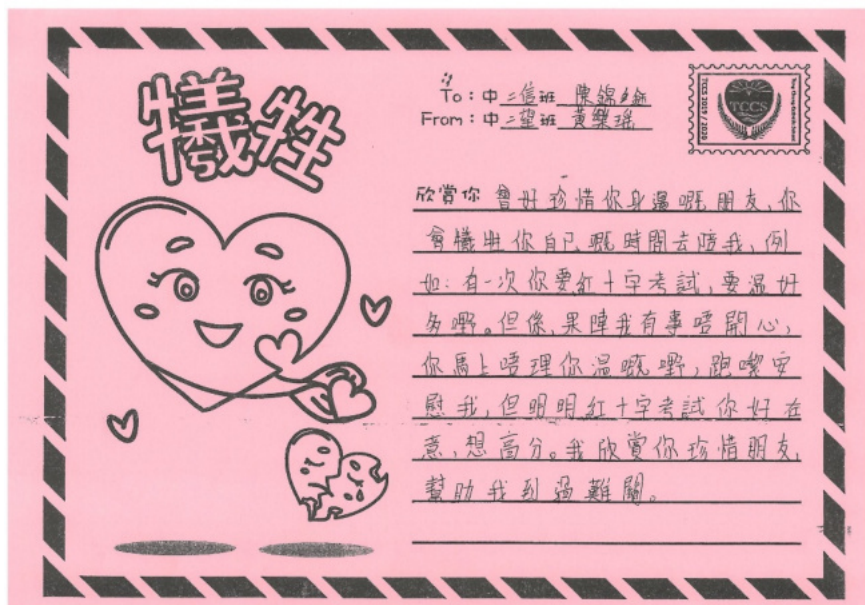 犧牲
To：中二信班 陳錦鈊
From：中二望班 黃樂瑤
TCCS 2019 / 2020
TCCS
Tung Chung Catholic School
欣賞你 會好珍惜你身邊嘅朋友、你
會犧牲你自己嘅時間去陪我,例
如:有一次你要紅十字考試,要溫好
多嘢。但係,果陣我有事唔開心,
你馬上唔理你溫嘅嘢,跑嚟安
慰我,但明明紅十字考試你好在
意,想高分。我欣賞你珍惜朋友,
幫助我到過難關。